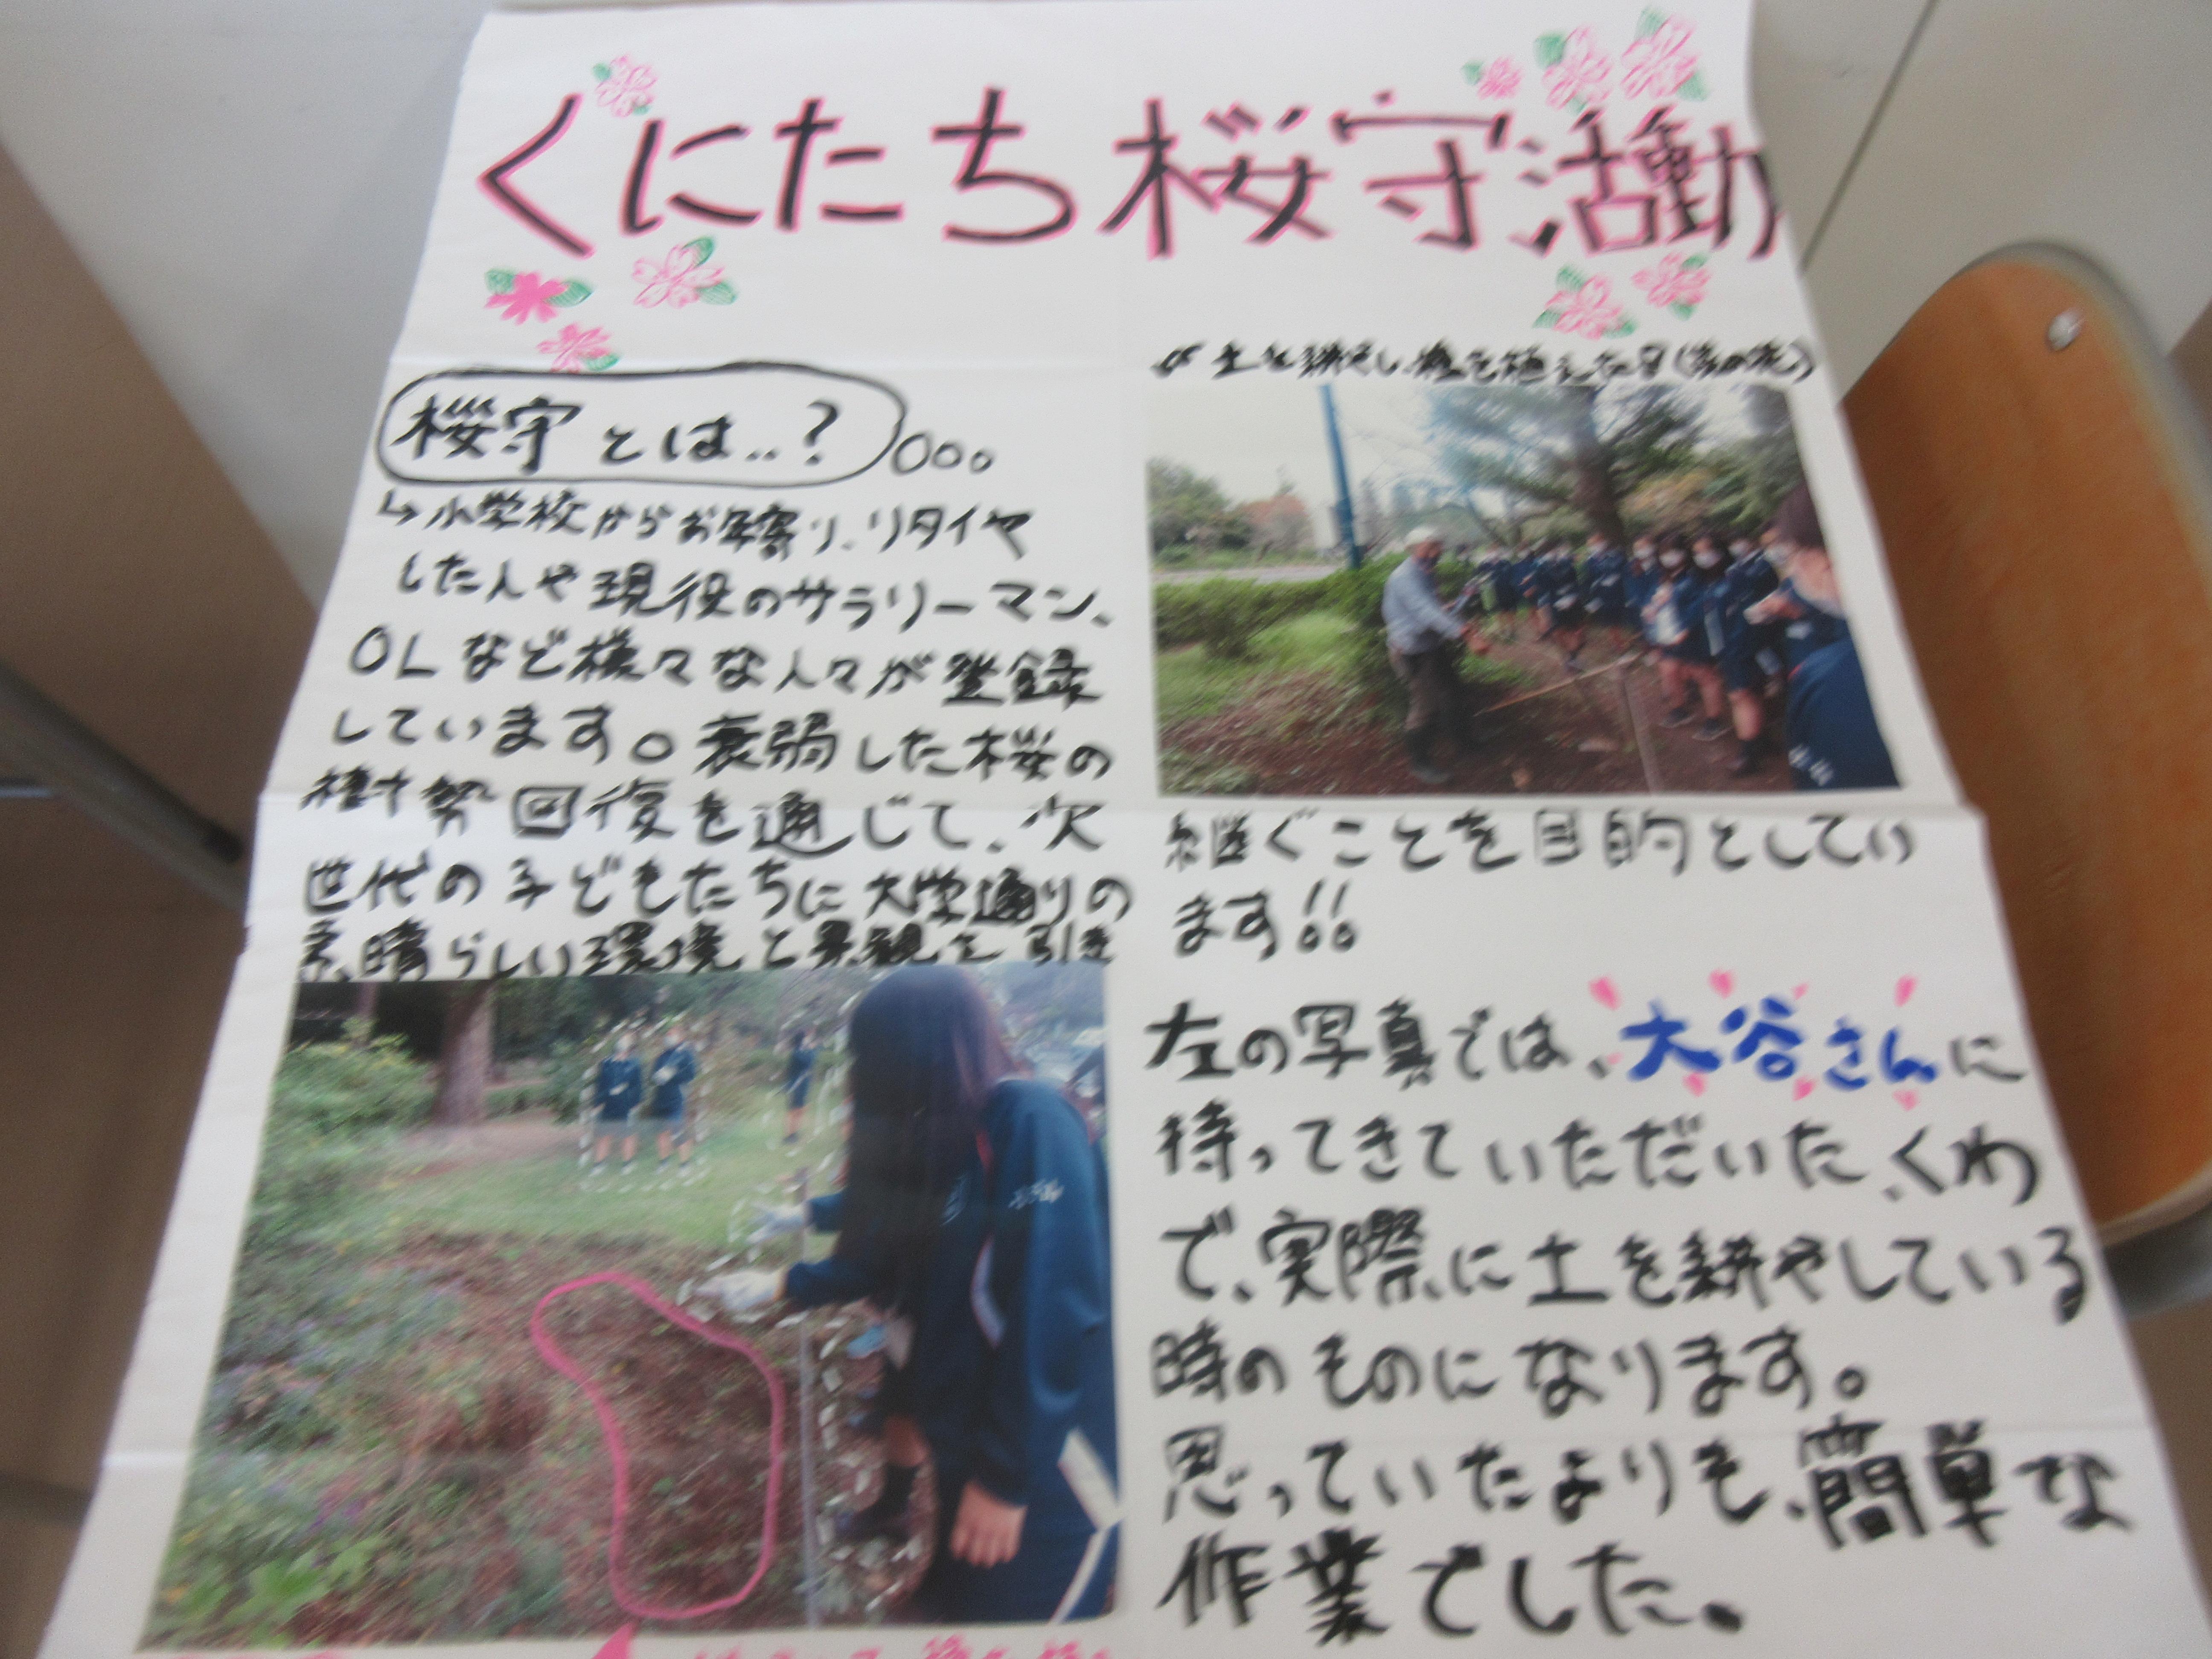 くにたち桜守活動
桜守とは..?
↳小学校からお年寄り、リタイヤ
した人や現役のサラリーマン、
OLなど様々な人々が登録
しています。衰弱した桜の
樹勢回復を通じて、次
世代の子どもたちに大学通りの
素晴らしい環境と景観を引き
土を耕やし、種を植えた日
継ぐことを目的としてい
ます!!
左の写真では、大谷さんに
持ってきていただいた、くわ
で、実際に土を耕やしている
時のものになります。
思っていたよりも、簡単な
作業でした。